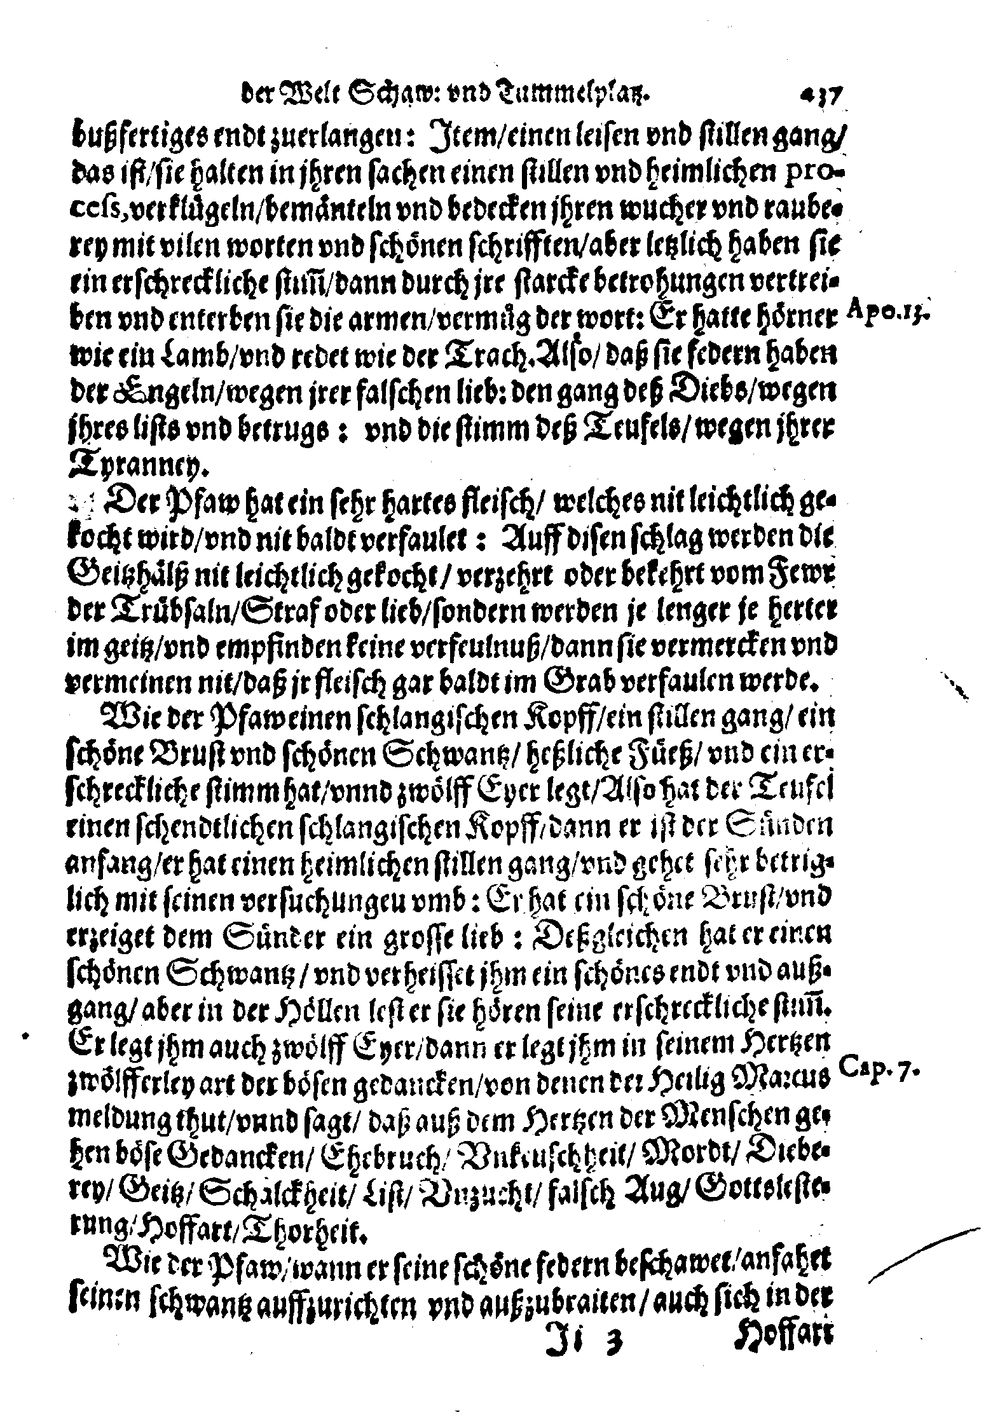 der Welt Schaw: vnd Tummelplatz. 437
bußfertiges endt zuerlangen: Item/einen leisen vnd stillen gang/
das ist/sie halten in jhren sachen einen stillen vnd heimlichen pro-
cess, verklügeln/bemänteln vnd bedecken jhren wucher vnd raube-
rey mit vilen worten vnd schönen schrifften/aber letzlich haben sie
ein erschreckliche stim̃/dann durch jre starcke betrohungen vertrei-
ben vnd enterben sie die armen/vermüg der wort: Er hatte hörner Apo.13.
wie ein Lamb/vnd redet wie der Trach. Also/ daß sie federn haben
der Engeln/wegen jrer falschen lieb: den gang deß Diebs/wegen
jhres lists vnd betrugs: vnd die stimm deß Teufels/wegen jhrer
Tyranney.
Der Pfaw hat ein sehr hartes fleisch/ welches nit leichtlich ge-
kocht wird/vnd nit baldt verfaulet: Auff disen schlag werden die
Geitzhälß nit leichtlich gekocht/ verzehrt oder bekehrt vom Fewr
der Trübsaln/Straf oder lieb/sondern werden je lenger je herter
im geitz/vnd empfinden keine verfeulnuß/dann sie vermercken vnd
vermeinen nit/daß jr fleisch gar baldt im Grab verfaulen werde.
Wie der Pfaw einen schlangischen Kopff/ein stillen gang/ ein
schöne Brust vnd schönen Schwantz/ heßliche Füeß/ vnd ein er-
schreckliche stimm hat/vnnd zwölff Eyer legt/Also hat der Teufel
einen schendtlichen schlangischen Kopff/dann er ist der Sünden
anfang/er hat einen heimlichen stillen gang/vnd gehet sehr betrig-
lich mit seinen versuchungeu vmb: Er hat ein schöne Brust/vnd
erzeiget dem Sünder ein grosse lieb: Deßgleichen hat er einen
schönen Schwantz/ vnd verheisset jhm ein schönes endt vnd auß-
gang/ aber in der Höllen lest er sie hören seine erschreckliche stim̃.
Er legt jhm auch zwölff Eyer/dann er legt jhm in seinem Hertzen
zwölfferley art der bösen gedancken/von denen der Heilig Marcus Cap. 7.
meldung thut/vnnd sagt/ daß auß dem Hertzen der Menschen ge-
hen böse Gedancken/ Ehebruch/ Vnkeuschheit/ Mordt/ Diebe-
rey/ Geitz/ Schalckheit/ List/ Vnzucht/ falsch Aug/ Gottsleste-
rung/Hoffart/Thorheit.
Wie der Pfaw/wann er seine schöne federn beschawet/anfahet
seinen schwantz auffzurichten vnd außzubraiten/ auch sich in der
Ji 3 Hoffart